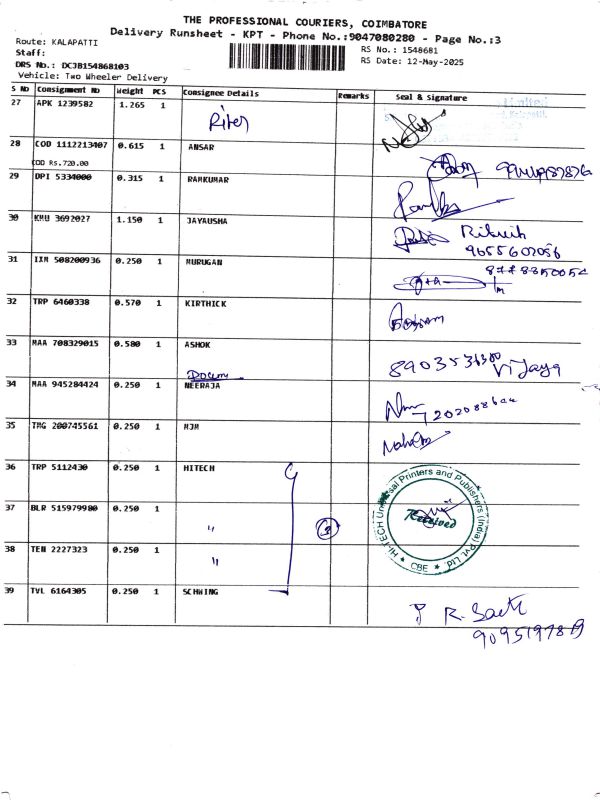 THE PROFESSIONAL COURIERS, COIMBATORE
Delivery Runsheet - KPT - Phone No.:9047080280 - Page No.:3
Route: KALAPATTI
RS No.: 1548681
Staff:
RS Date: 12-May-2025
DRS No.: DCJB154868103
Vehicle: Two Wheeler Delivery
S No Consignment No Weight PCS Consignee Details Remarks Seal & Signature
27 APK 1239582 1.265 1
28 COD 1112213407 0.615 1 ANSAR
COD Rs.720.00
29 DPI 5334000 0.315 1 RAMKUMAR
30 KMU 3692027 1.150 1 JAYAUSHA
31 IXM 508200936 0.250 1 MURUGAN
32 TRP 6460338 0.570 1 KIRTHICK
33 MAA 708329015 0.580 1 ASHOK
Vijaya
34 MAA 945284424 0.250 1 NEERAJA
35 TMG 200745561 0.250 1 MJM
36 TRP 5112430 0.250 1 HITECH
HI-TECH Universal Printers and Publishers (India) Pvt. Ltd.
Received
CBE
37 BLR 515979980 0.250 1 "
38 TEN 2227323 0.250 1 "
39 TVL 6164305 0.250 1 SCHWING